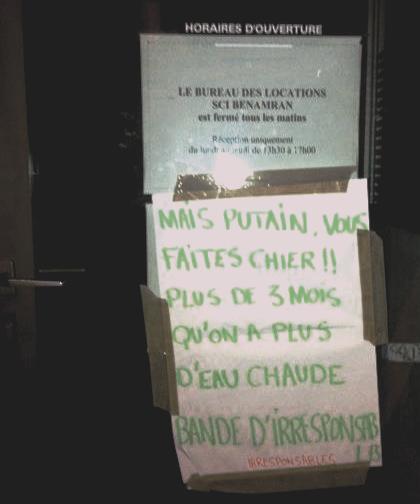 HORAIRES D'OUVERTURE
LE BUREAU DES LOCATIONS
SCI BENAMRAN
est fermé tous les matins
Réception uniquement
du lundi au jeudi de 13h30 à 17h00
MAIS PUTAIN, VOUS
FAITES CHIER !!
PLUS DE 3 MOIS
QU'ON A PLUS
D'EAU CHAUDE
BANDE D'IRRESPONSAB
LES
IRRESPONSABLES